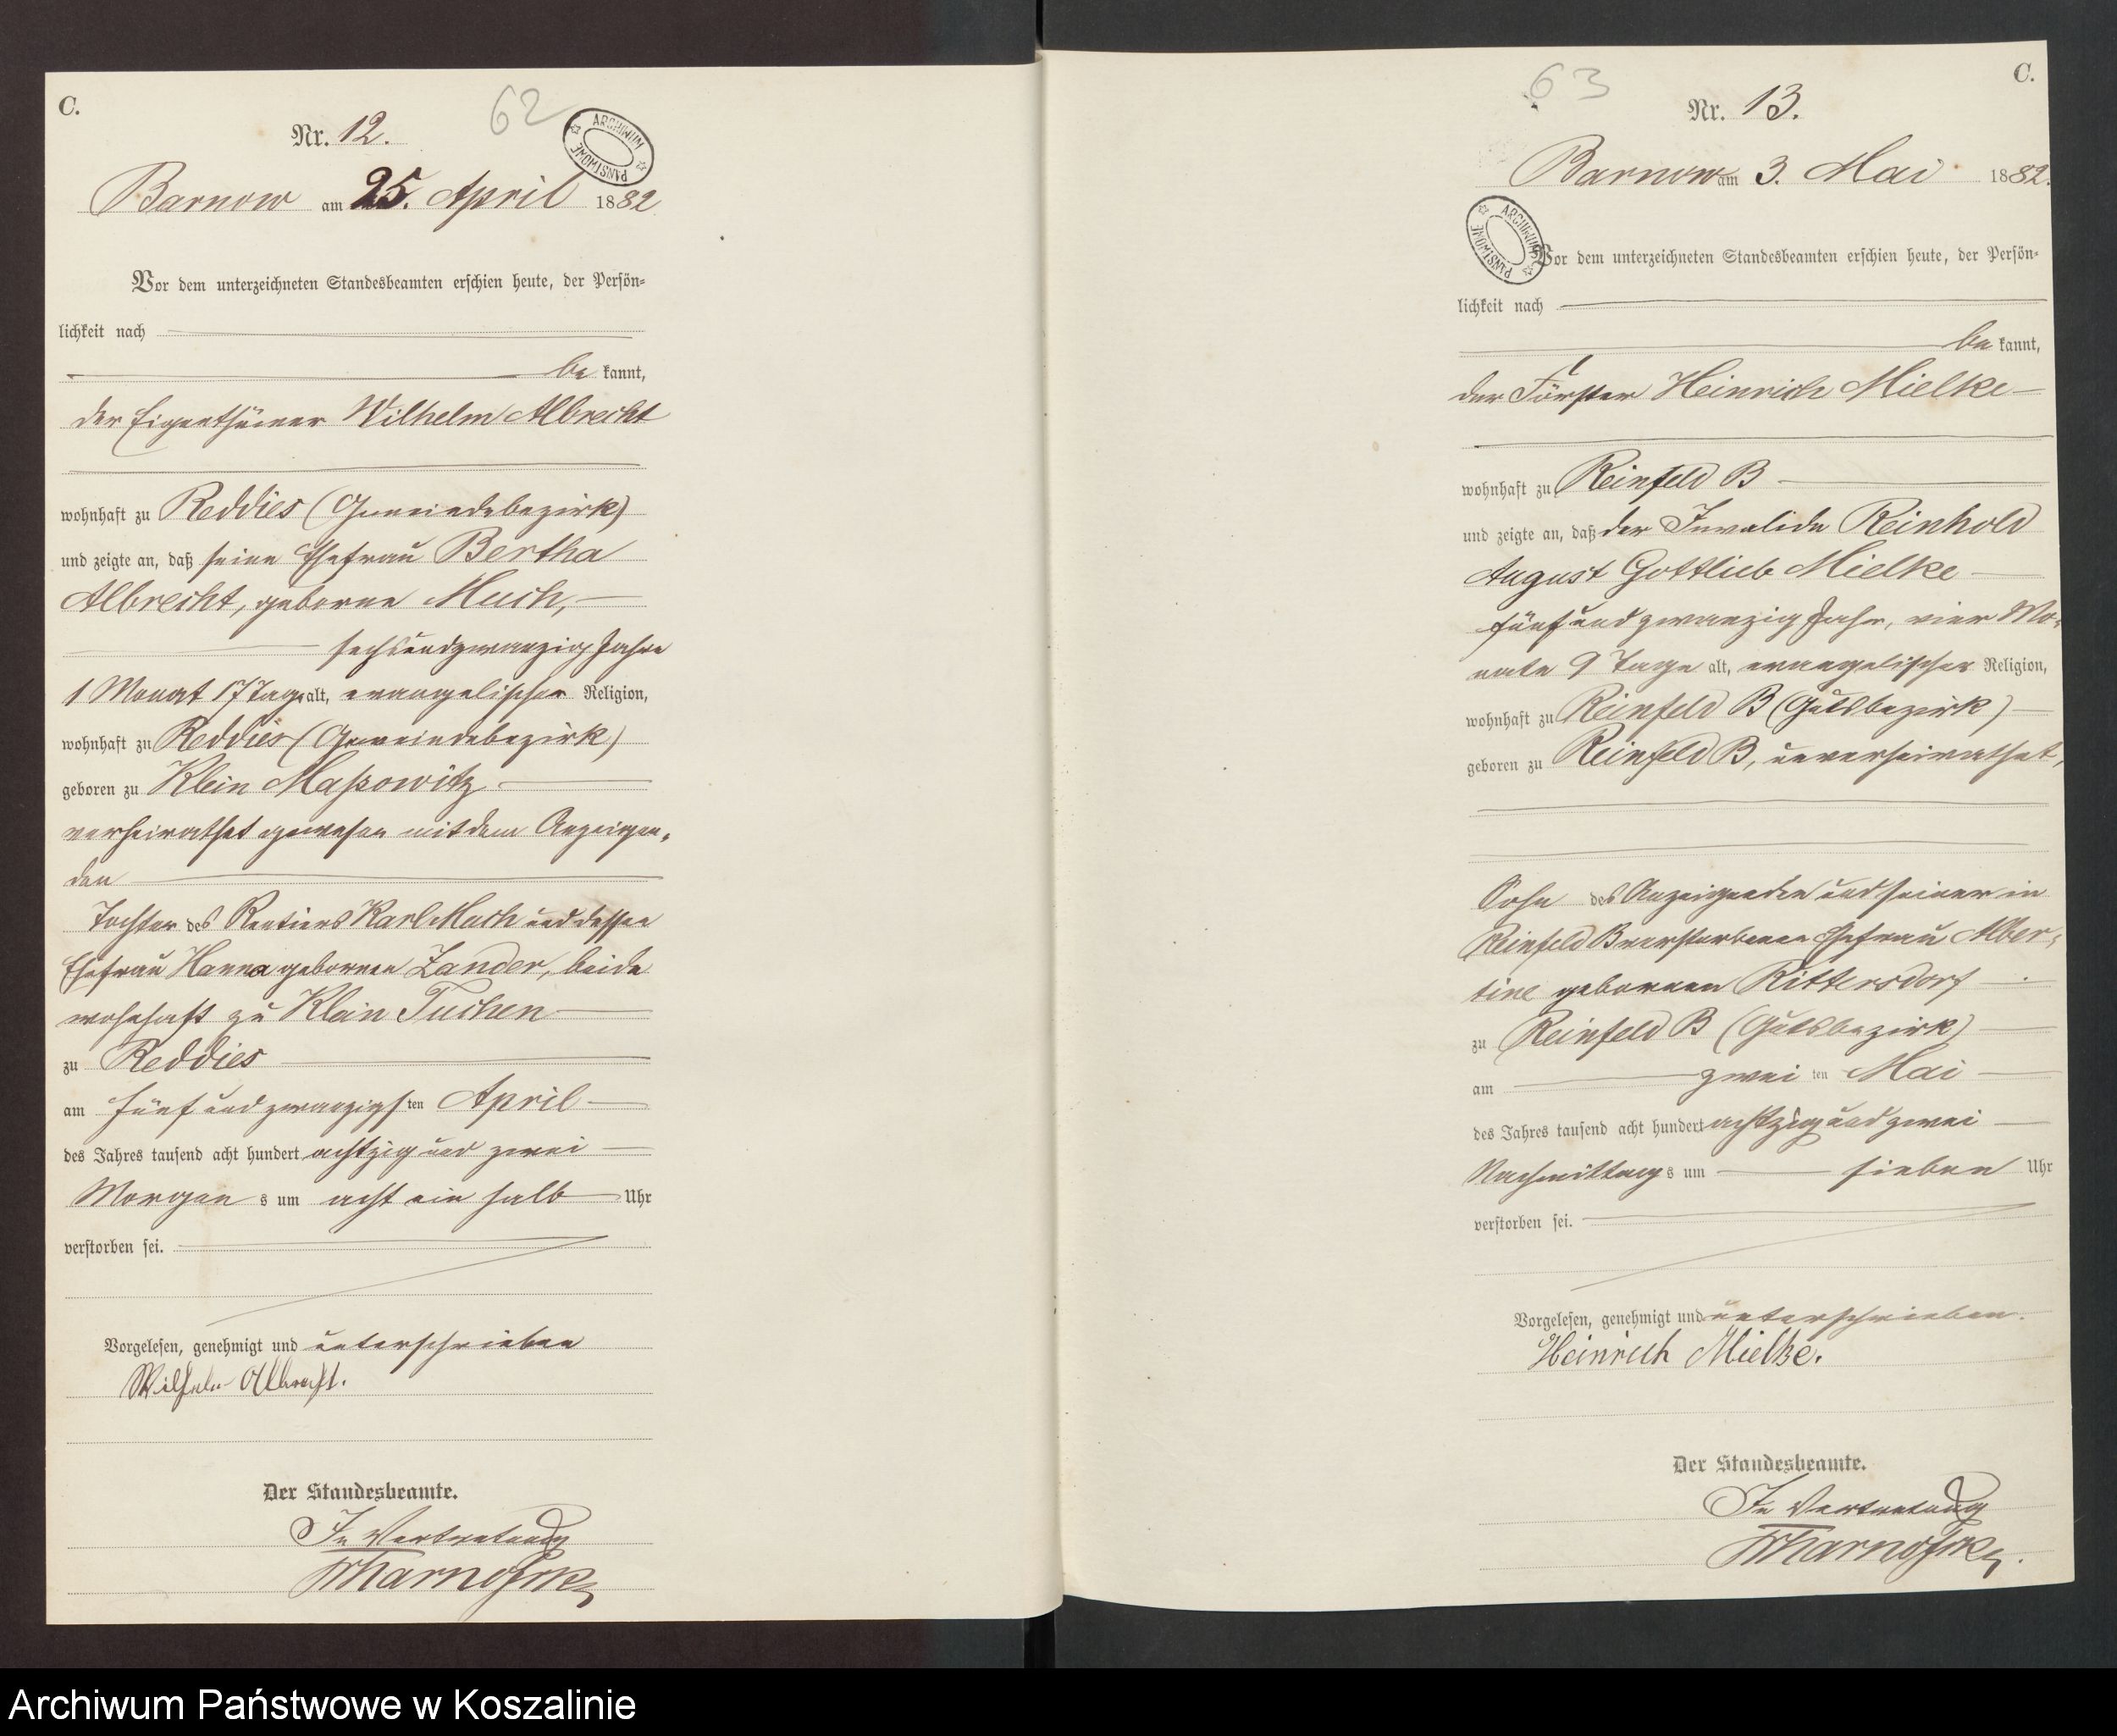 C.
62
Nr. 12.
ARCHIWUM PAŃSTWOWE
Barnow am 25. April 1882
Vor dem unterzeichneten Standesbeamten erschien heute, der Persön-
lichkeit nach
be kannt,
der Eigenthümer Wilhelm Albrecht
wohnhaft zu Reddies (Gemeindebezirk)
und zeigte an, daß seine Ehefrau Bertha
Albrecht, geborne Much,
sechsundzwanzig Jahre
1 Monat 17 Tage alt, evangelischer Religion,
wohnhaft zu Reddies (Gemeindebezirk)
geboren zu Klein Maßowitz
verheirathet gewesen mit dem Anzeigen-
den
Tochter des Rentiers Karl Much und dessen
Ehefrau Hanna gebornen Zander, beide
wohnhaft zu Klein Tuchen
zu Reddies
am fünf und zwanzigsten April
des Jahres tausend acht hundert achtzig und zwei
Morgens um acht ein halb Uhr
verstorben sei.
Vorgelesen, genehmigt und unterschrieben
Wilhelm Albrecht.
Der Standesbeamte.
In Vertretung
63
C.
Nr. 13.
Barnow am 3. Mai 1882.
ARCHIWUM PAŃSTWOWE
Vor dem unterzeichneten Standesbeamten erschien heute, der Persön-
lichkeit nach
be kannt,
der Förster Heinrich Mielke
wohnhaft zu Reinfeld B
und zeigte an, daß der Invalide Reinhold
August Gottlieb Mielke
fünf und zwanzig Jahr, vier Mo-
nate 9 Tage alt, evangelischer Religion,
wohnhaft zu Reinfeld B (Gutsbezirk)
geboren zu Reinfeld B, unverheirathet,
Sohn des Anzeigenden und seiner in
Reinfeld B verstorbenen Ehefrau Alber-
tine gebornen Rittersdorf
zu Reinfeld B (Gutsbezirk)
am zweiten Mai
des Jahres tausend acht hundert achtzig und zwei
Nachmittags um sieben Uhr
verstorben sei.
Vorgelesen, genehmigt und unterschrieben.
Heinrich Mielke.
Der Standesbeamte.
In Vertretung
Archiwum Państwowe w Koszalinie